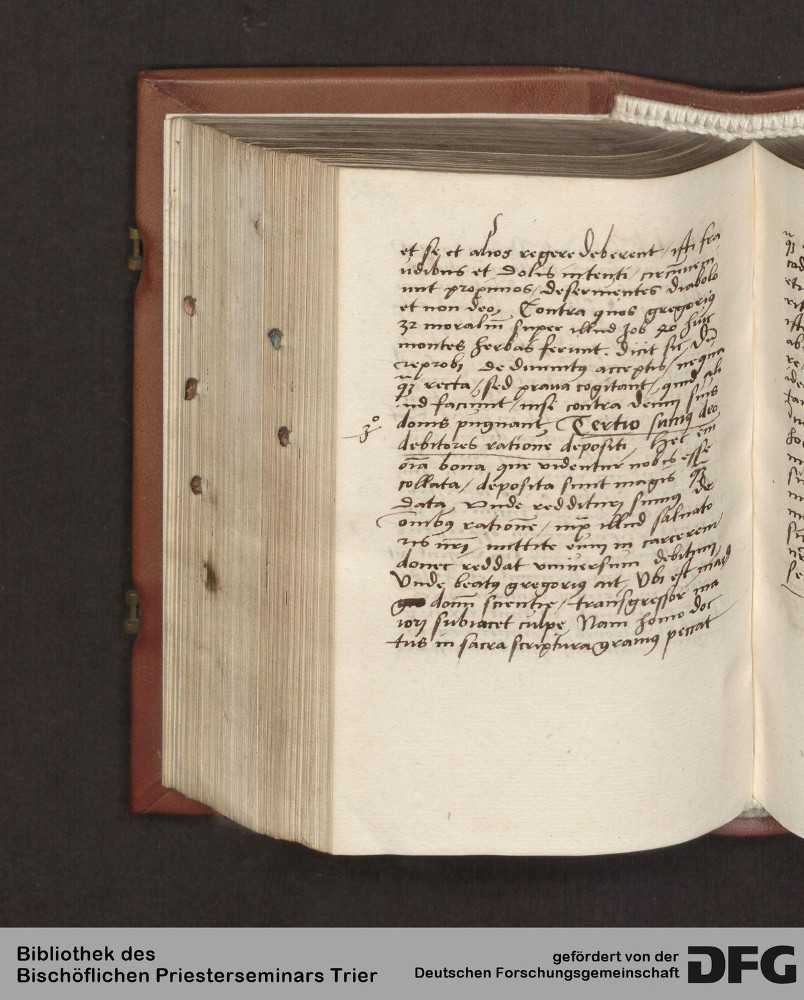 et se et alios regere deberent, isti frau
udibus et dolis intenti, circumveni
unt proximos, deservientes diabolo
et non deo, Contra quos gregoriꝰ
32 moraliũ super illud Job 40 huic
montes herbas ferunt. dicit sic, Dũ
reprobi de divinitꝰ acceptis, nequa
qꝫ recta, sed prava cogitant, quid ali
ud faciunt, nisi contra deum suis
3º
donis pugnant, Tertio sumꝰ deo
debitores ratione depositi, Hec em̄
oĩa bona que videntur nobis esse
collata, deposita sunt magis qꝫ
data, Unde reddituri sumus de
omnibꝰ ratione, iuxͭ illud salvato
ris nr̃i, mittite eum in carcerem
donec reddat universum debitum,
Unde beatꝰ gregoriꝰ ait Ubi est maiꝰ
donũ scientie, transgressor ma
iori subiacet culpe, Nam homo doc
tus in sacra scriptura graviꝰ peccat
Bibliothek des
Bischöflichen Priesterseminars Trier
gefördert von der
Deutschen Forschungsgemeinschaft
DFG